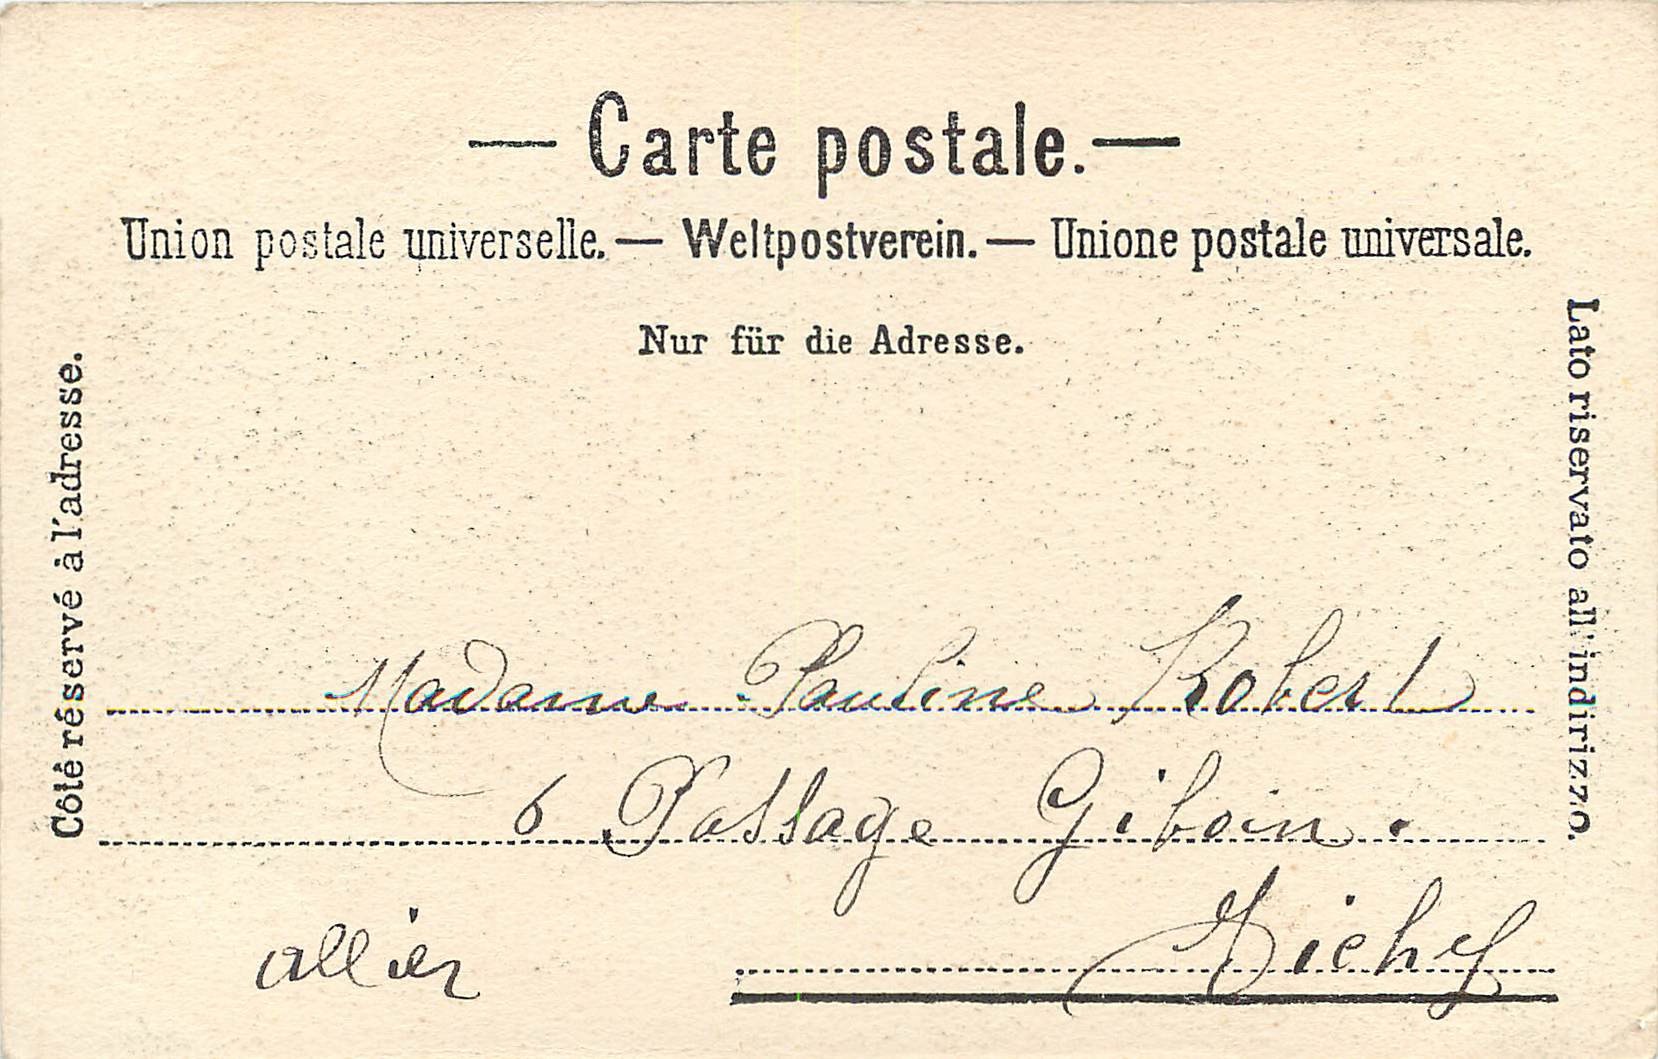 — Carte postale. —
Union postale universelle. — Weltpostverein. — Unione postale universale.
Nur für die Adresse.
Côté réservé à l'adresse.
Lato riservato all'indirizzo.
Madame Pauline Robert
6 Passage Giboin.
Vichy
allier